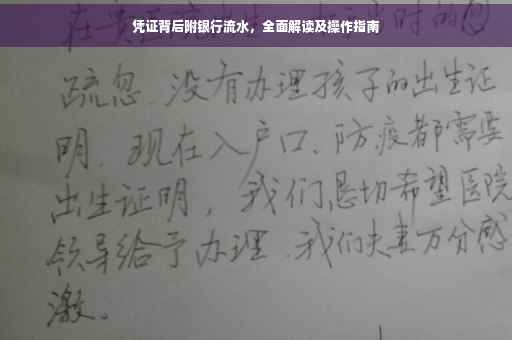 凭证背后附银行流水，全面解读及操作指南
在贵
时的
疏忽、没有办理孩子的出生证
明、现在入户口、防疫都需要
出生证明，我们恳切希望医院
领导给予办理、我们夫妻万分感
激。